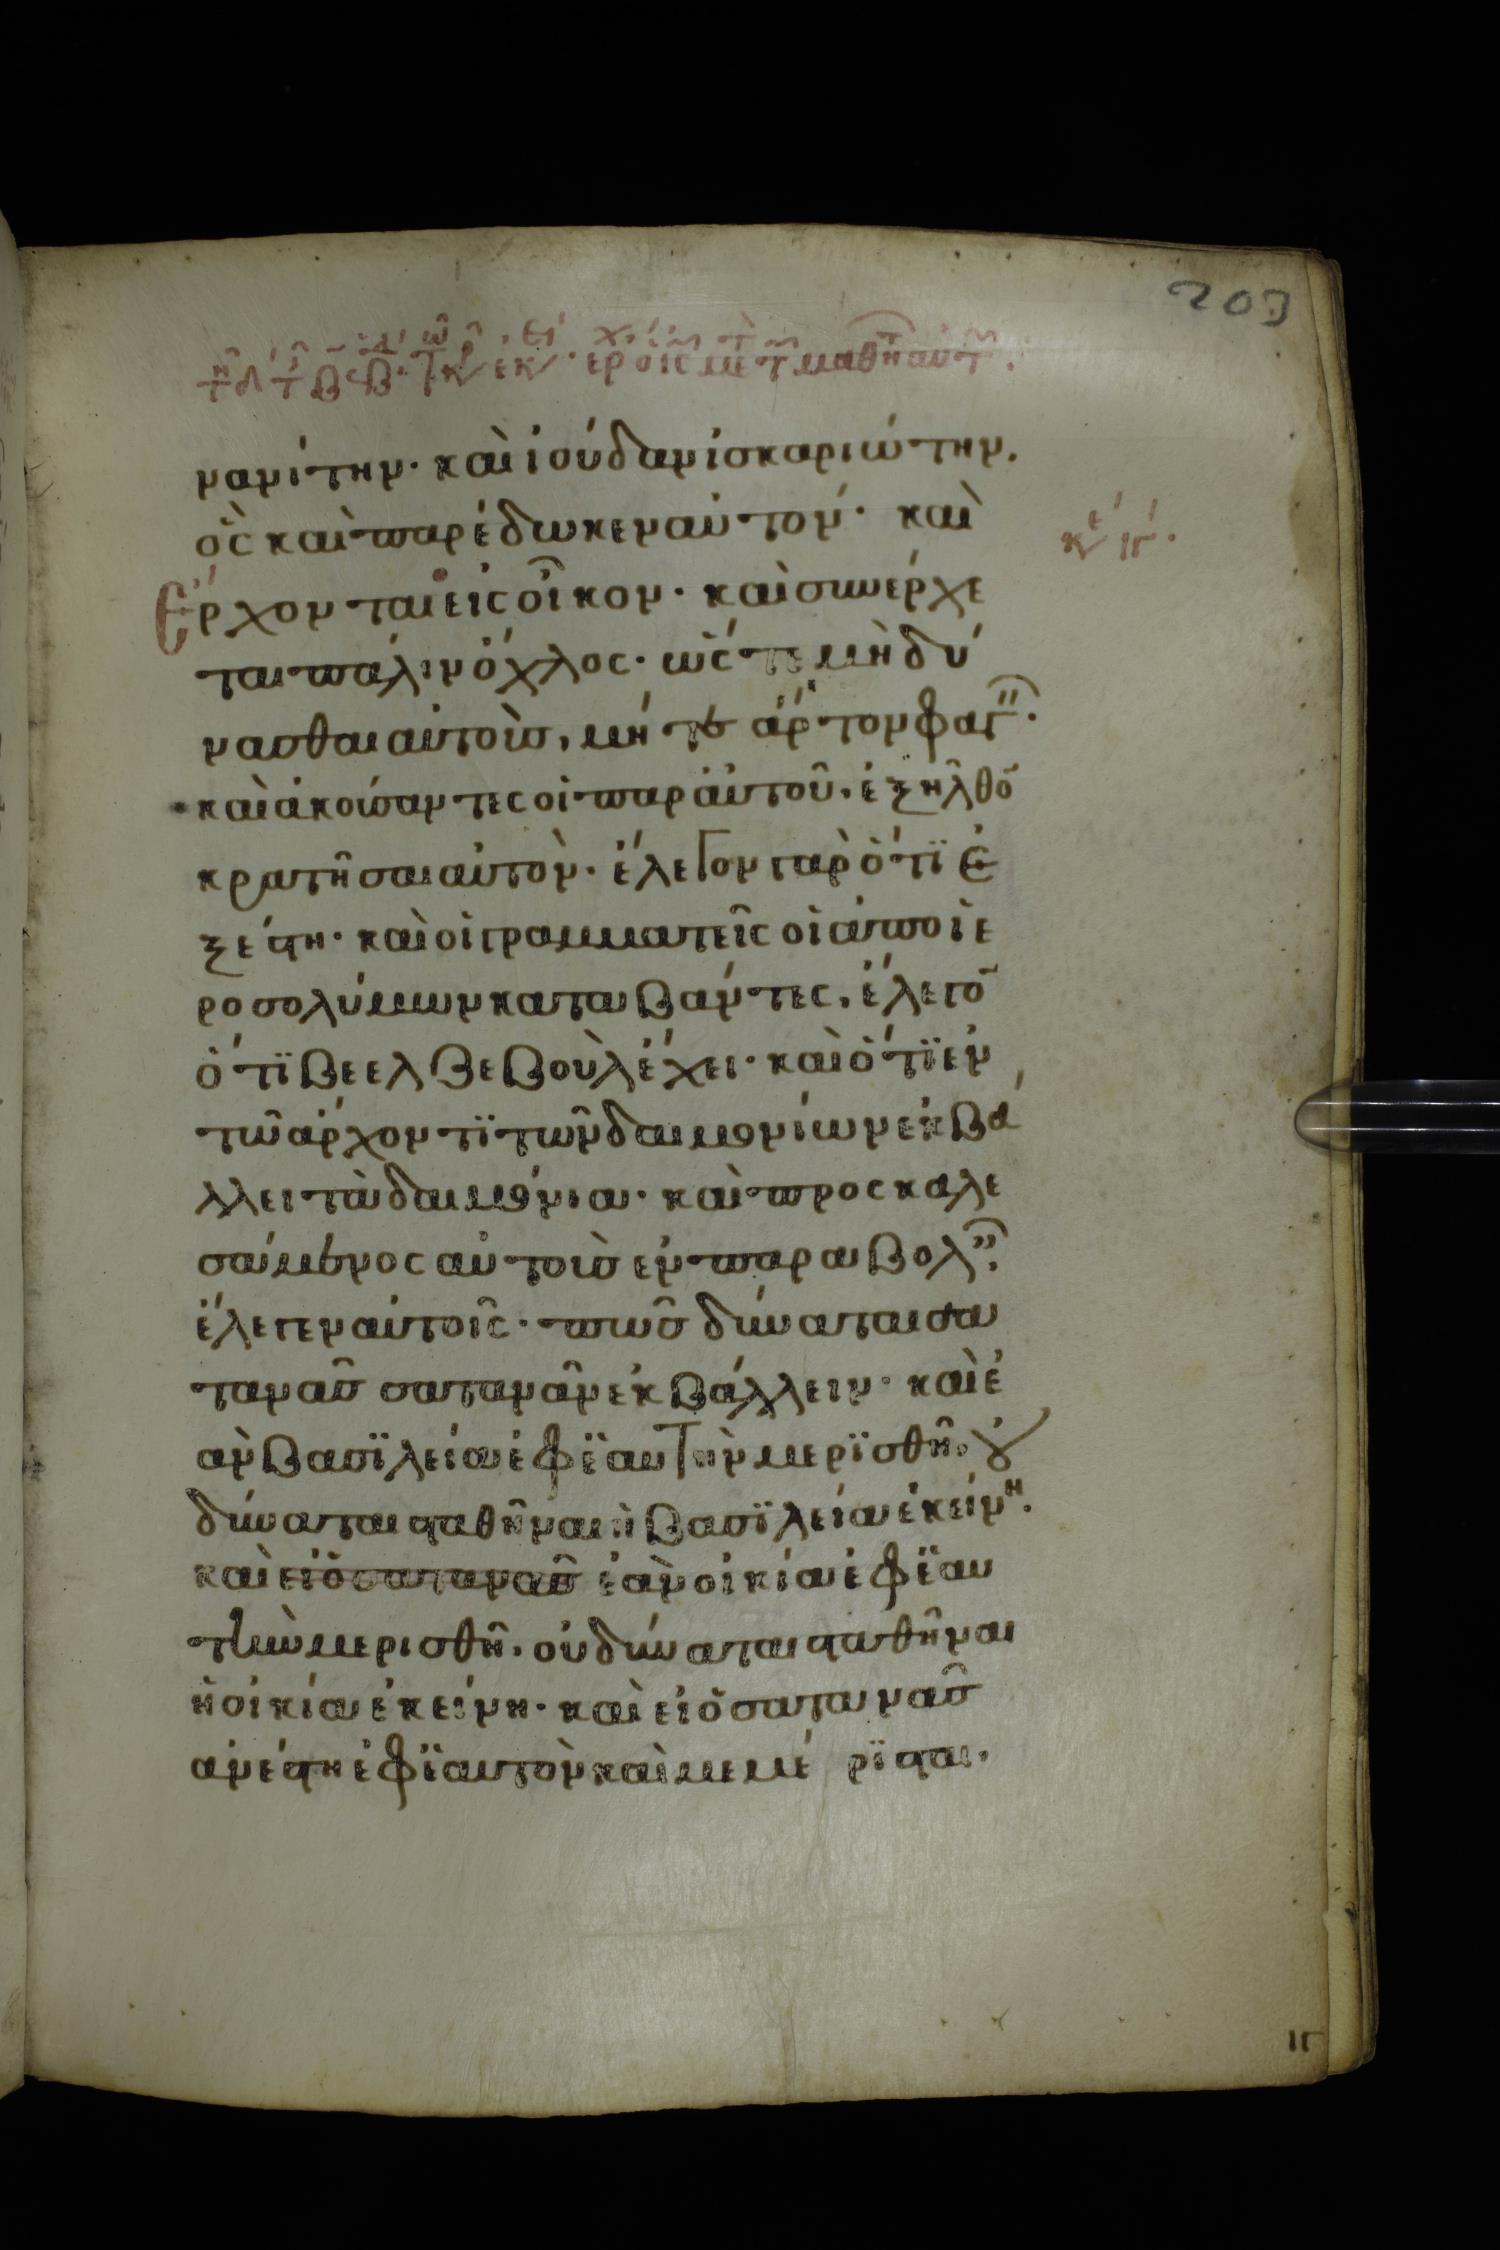 203
νανίτην· καὶ ἰούδαν ἰσκαριώτην.
ὃς καὶ παρέδωκεν αὐτόν· καὶ
κε ιγ.
Ἔρχονται εἰς οἶκον· καὶ συνέρχε
ται πάλιν ὄχλος· ὥστε μὴ δύ
νασθαι αὐτοὺς, μήτε ἄρτον φαγεῖν·
καὶ ἀκούσαντες οἱ παρ αὐτοῦ, ἐξῆλθο̄
κρατῆσαι αὐτὸν· ἔλεγον γὰρ ὅτϊ ἐ
ξέστη· καὶ οἱ γραμματεῖς οἱ ἀπὸ ἱε
ροσολύμων καταβάντες, ἔλεγο̄
ὅτϊ βεελζεβοὺλ ἔχει· καὶ ὅτϊ ἐν
τῶ ἄρχοντϊ τῶν δαιμονίων ἐκβά
λλει τὰ δαιμόνια· καὶ προσκαλε
σάμενος αὐτοὺς ἐν παραβολαῖς
ἔλεγεν αὐτοῖς· πῶς δύναται σα
τανᾶς σατανᾶν ἐκβάλλειν· καὶ ἐ
ὰν βασϊλεία ἐφ ἑαυτὴν μερϊσθῆ, οὐ
δύναται σταθῆναι ἡ βασϊλεία ἐκείνη.
καὶ εἰ ὁ σατανᾶς ἐὰν οἰκία ἐφ ἑαυ
τὴν μερισθῆ, οὐ δύναται σταθῆναι
ἡ οἰκία ἐκείνη· καὶ εἰ ὁ σατανᾶς
ἀνέστη ἐφ ἑαυτὸν καὶ μεμέρϊσται.